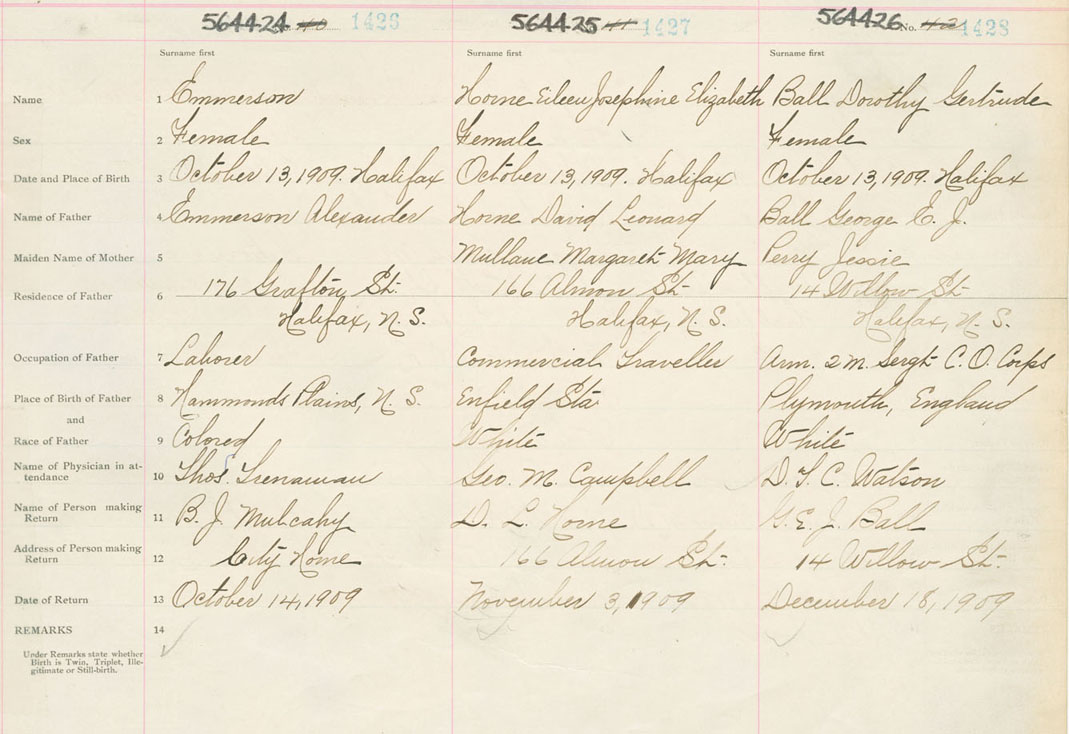 564424 No. 40 1426 564425 41 1427 564426 No. 42 1428
Surname first Surname first Surname first
Name 1 Emmerson Horne Eileen Josephine Elizabeth Ball Dorothy Gertrude
Sex 2 Female Female Female
Date and Place of Birth 3 October 13, 1909. Halifax October 13, 1909. Halifax October 13, 1909. Halifax
Name of Father 4 Emmerson Alexander Horne David Leonard Ball George E. J.
Maiden Name of Mother 5 Mullane Margaret Mary Perry Jessie
Residence of Father 6 176 Grafton St. 166 Almon St. 14 Willow St.
Halifax, N. S. Halifax, N. S. Halifax, N. S.
Occupation of Father 7 Laborer Commercial Traveller Arm. 2 M. Sergt C. O. Corps
Place of Birth of Father 8 Hammonds Plains, N. S. Enfield Sta Plymouth, England
and
Race of Father 9 Colored White White
Name of Physician in at-
tendance 10 Thos. Trenaman Geo. M. Campbell D. T. C. Watson
Name of Person making
Return 11 B. J. Mulcahy D. L. Horne G. E. J. Ball
Address of Person making
Return 12 City Home 166 Almon St. 14 Willow St.
Date of Return 13 October 14, 1909 November 3, 1909 December 18, 1909
REMARKS 14
Under Remarks state whether
Birth is Twin, Triplet, Ille-
gitimate or Still-birth.